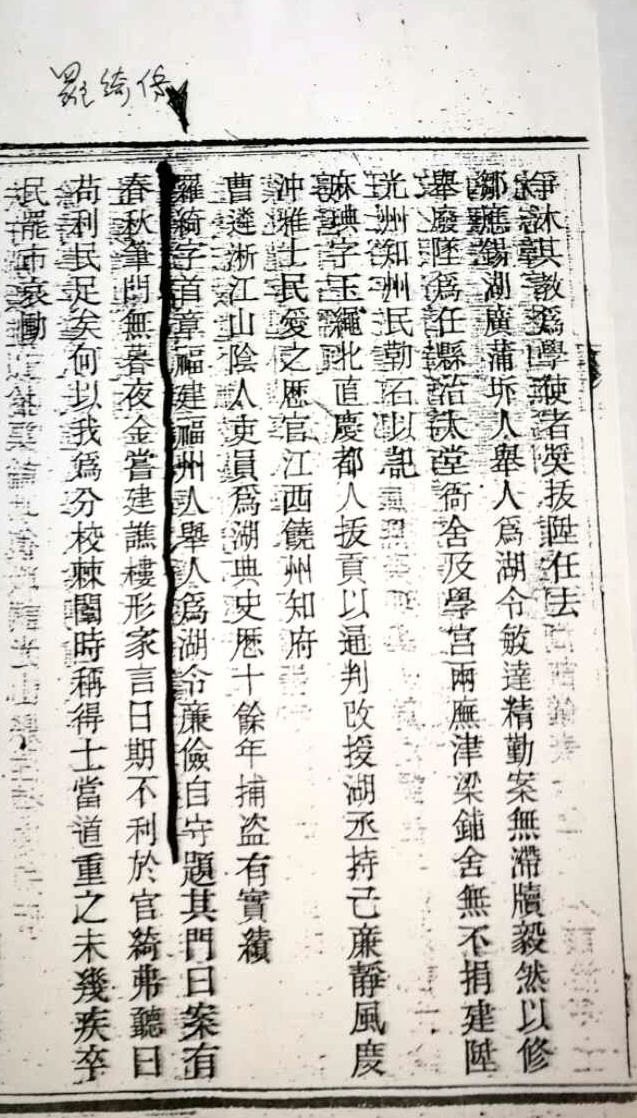 羅綺傳
爭沐其敎爲學使者奬拔陞任去
鄒應錫湖廣蒲圻人舉人爲湖令敏達精勤案無滯牘毅然以修
舉廢墜爲任縣治大堂衙舍及學宮兩廡津梁鋪舍無不捐建陞
光州知州民勒石以記
麻琠字玉繩北直慶都人拔貢以通判改授湖丞持己廉靜風度
沖雅士民愛之歷官江西饒州知府
曹遴浙江山陰人吏員爲湖典史歷十餘年捕盜有實績
羅綺字首章福建福州人舉人爲湖令廉儉自守題其門曰案有
春秋筆門無暮夜金嘗建譙樓形家言日期不利於官綺弗聽曰
苟利民足矣何以我爲分校棘闈時稱得士當道重之未幾疾卒
民罷市哀慟